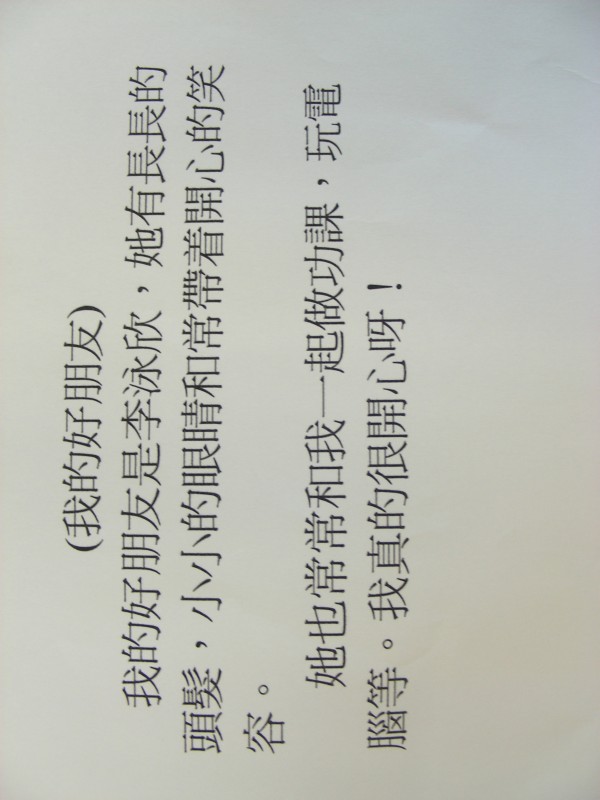 (我的好朋友)
我的好朋友是李泳欣，她有長長的
頭髮，小小的眼睛和常帶着開心的笑
容。
她也常常和我一起做功課，玩電
腦等。我真的很開心呀！